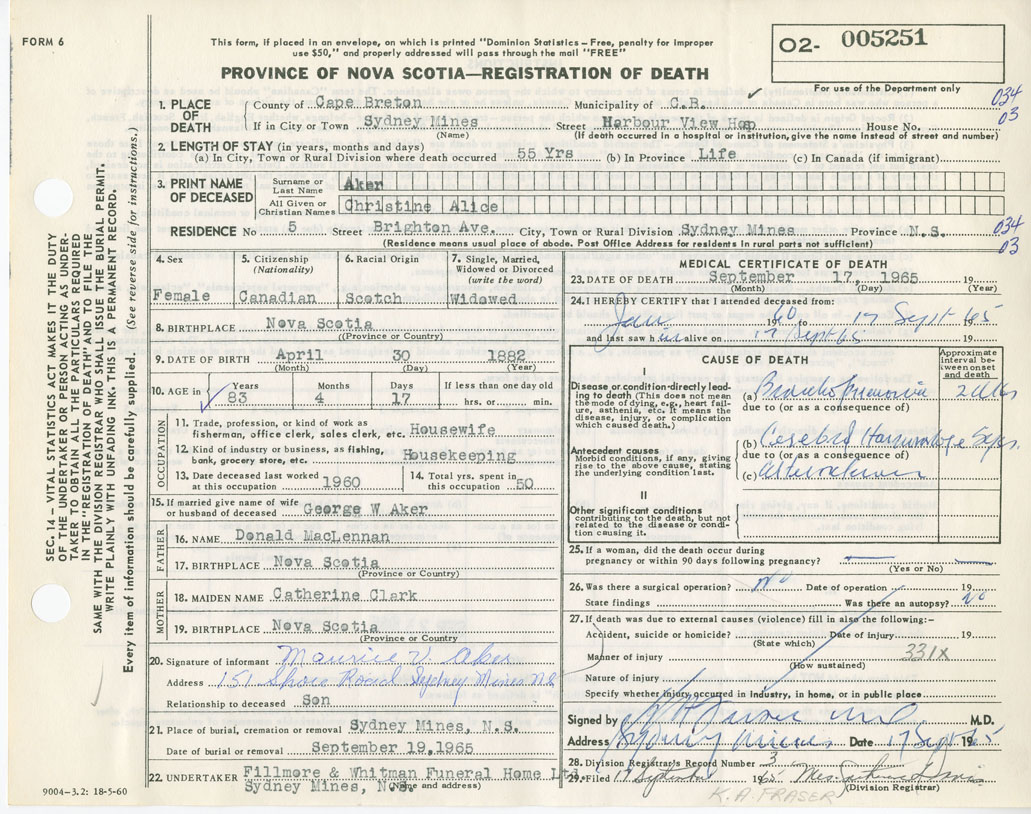 FORM 6
This form, if placed in an envelope, on which is printed "Dominion Statistics – Free, penalty for improper
use $50," and properly addressed will pass through the mail "FREE"
02- 005251
For use of the Department only
PROVINCE OF NOVA SCOTIA—REGISTRATION OF DEATH
SEC. 14 – VITAL STATISTICS ACT MAKES IT THE DUTY
OF THE UNDERTAKER OR PERSON ACTING AS UNDER-
TAKER TO OBTAIN ALL THE PARTICULARS REQUIRED
IN THE "REGISTRATION OF DEATH" AND TO FILE THE
SAME WITH THE DIVISION REGISTRAR WHO SHALL ISSUE THE BURIAL PERMIT.
WRITE PLAINLY WITH UNFADING INK. THIS IS A PERMANENT RECORD.
Every item of information should be carefully supplied. (See reverse side for instructions.)
1. PLACE OF DEATH
County of Cape Breton Municipality of C.B.
034
03
If in City or Town Sydney Mines Street Harbour View Hop House No.
(Name) (If death occurred in a hospital or institution, give the name instead of street and number)
2. LENGTH OF STAY (in years, months and days)
(a) In City, Town or Rural Division where death occurred 55 Yrs (b) In Province Life (c) In Canada (if immigrant)
3. PRINT NAME OF DECEASED
Surname or Last Name Aker
All Given or Christian Names Christine Alice
RESIDENCE No 5 Street Brighton Ave. City, Town or Rural Division Sydney Mines Province N.S.
(Residence means usual place of abode. Post Office Address for residents in rural parts not sufficient)
034
03
4. Sex
Female
5. Citizenship
(Nationality)
Canadian
6. Racial Origin
Scotch
7. Single, Married,
Widowed or Divorced
(write the word)
Widowed
8. BIRTHPLACE Nova Scotia
(Province or Country)
9. DATE OF BIRTH April 30 1882
(Month) (Day) (Year)
10. AGE in
Years Months Days If less than one day old
83 4 17 hrs. or min.
OCCUPATION
11. Trade, profession, or kind of work as
fisherman, office clerk, sales clerk, etc. Housewife
12. Kind of industry or business, as fishing,
bank, grocery store, etc. Housekeeping
13. Date deceased last worked
at this occupation 1960
14. Total yrs. spent in
this occupation 50
15. If married give name of wife
or husband of deceased George W Aker
FATHER
16. NAME Donald MacLennan
17. BIRTHPLACE Nova Scotia
(Province or Country)
MOTHER
18. MAIDEN NAME Catherine Clark
19. BIRTHPLACE Nova Scotia
(Province or Country)
20. Signature of informant Maurice V. Aker
Address 151 Shore Road Sydney Mines N.S.
Relationship to deceased Son
21. Place of burial, cremation or removal Sydney Mines, N.S.
Date of burial or removal September 19, 1965
22. UNDERTAKER Fillmore & Whitman Funeral Home Ltd.
Sydney Mines, N.S. (Name and address)
9004–3.2: 18-5-60
MEDICAL CERTIFICATE OF DEATH
23. DATE OF DEATH September 17, 1965 19
(Month) (Day) (Year)
24. I HEREBY CERTIFY that I attended deceased from:
Jan 1960 to 17 Sept 1965
and last saw her alive on 17 Sept 65 19
CAUSE OF DEATH
Approximate
interval be-
tween onset
and death
I
Disease or condition directly lead-
ing to death (This does not mean
the mode of dying, e.g., heart fail-
ure, asthenia, etc. It means the
disease, injury, or complication
which caused death.)
(a) Bronchopneumonia
due to (or as a consequence of)
Antecedent causes
Morbid conditions, if any, giving
rise to the above cause, stating
the underlying condition last.
(b) Cerebral Haemorrhage 5 yrs.
due to (or as a consequence of)
(c)
II
Other significant conditions
contributing to the death, but not
related to the disease or condi-
tion causing it.
25. If a woman, did the death occur during
pregnancy or within 90 days following pregnancy?
(Yes or No)
26. Was there a surgical operation? No Date of operation 19
State findings Was there an autopsy? No
27. If death was due to external causes (violence) fill in also the following:-
Accident, suicide or homicide? Date of injury 19
(State which)
Manner of injury 331X
(How sustained)
Nature of injury
Specify whether injury occurred in industry, in home, or in public place
Signed by M.D.
Address Sydney Mines Date 17 Sept 1965
28. Division Registrar's Record Number 3
29. Filed 17 September 1965 Mrs.
(Division Registrar)
K. A. FRASER